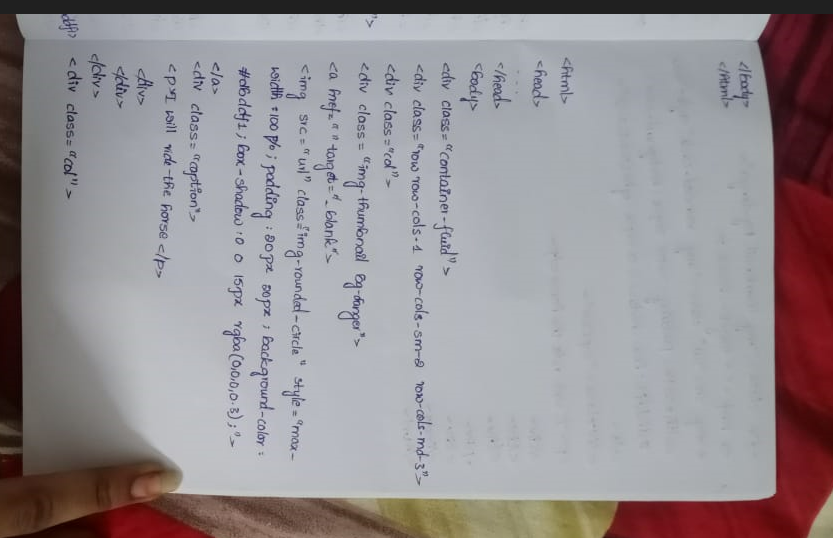 </body>
</html>
<html>
<head>
....
</head>
<body>
<div class="container-fluid">
<div class="row row-cols-1 row-cols-sm-2 row-cols-md-3">
<div class="col">
<div class="img-thumbnail bg-danger">
<a href="" target="_blank">
<img src="url" class="img-rounded-circle" style="max-
width:100%; padding:20px 20px; background-color:
#dbddf1; box-shadow:0 0 15px rgba(0,0,0,0.3);">
</a>
<div class="caption">
<p>I will ride the horse</p>
</div>
</div>
</div>
<div class="col">